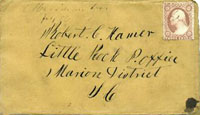 Robert C. Hamer
Little Rock P. Office
Marion District
S C